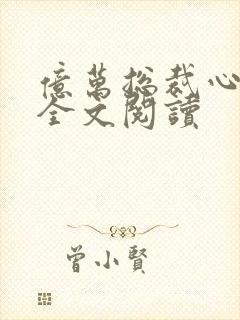 億萬總裁心
全文閱讀
曾小賢